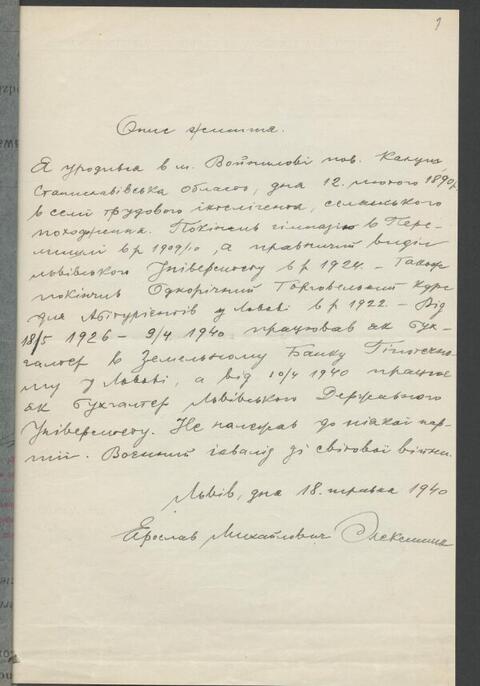 1
Опис життя.
Я уродився в м. Войнилові пов. Калуш
Станиславівська область, дня 12. лютого 1890 р.
в семі трудового інтелігента, селянського
походження. Покінчив гімназію в Пере-
мишлі в р 1909/10, а правничий виділ
львівського Університету в р 1924. – Також
покінчив Однорічний Торговельний курс
для Абітурієнтів у Львові в р 1922 – Від
18/5 1926 – 9/4 1940 працював як бух-
галтер в Земельному Банку Гіпотечно-
му у Львові, а від 10/4 1940 працює
як бухгалтер Львівського Державного
Університету. Не належав до ніякої пар-
тії. Воєнний інвалід зі світової війни.
Львів, дня 18. травня 1940
Ярослав Михайлович